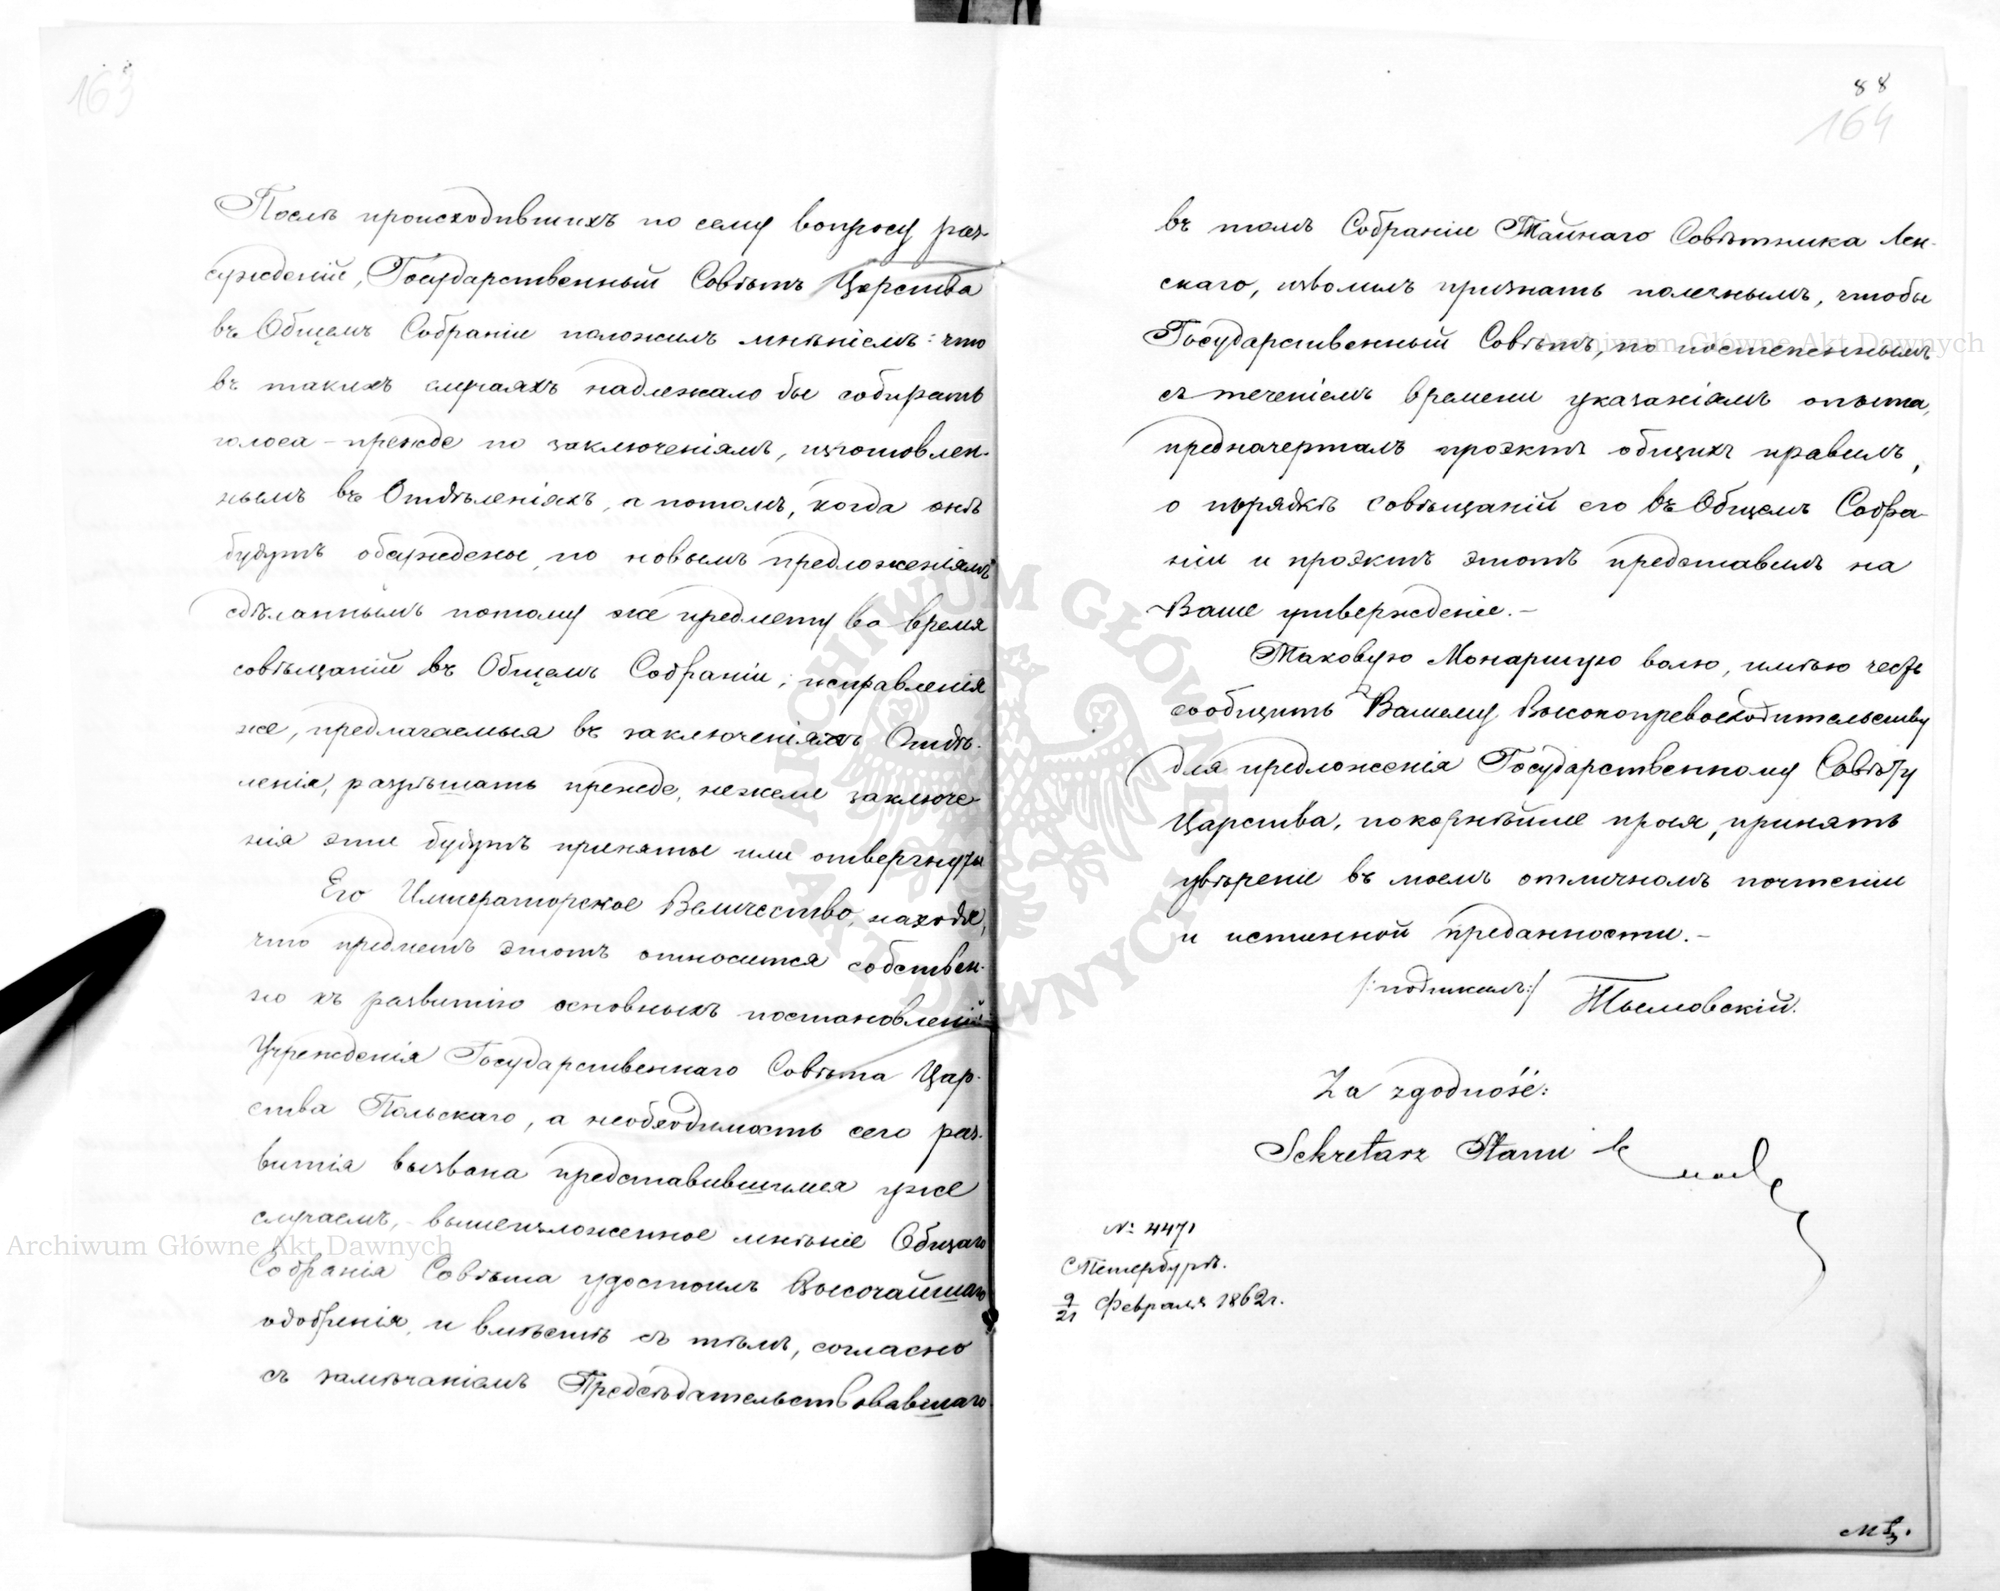 163
Послѣ происходившихъ по сему вопросу раз-
сужденій, Государственный Совѣтъ Царства
въ Общемъ Собраніи положилъ мнѣніемъ: что
въ такихъ случаяхъ надлежало бы собирать
голоса – прежде по заключеніямъ, изготовлен-
нымъ въ Отдѣленіяхъ, а потомъ, когда онѣ
будутъ обсуждены, по новымъ предложеніямъ
сдѣланнымъ потому же предмету во время
совѣщаній въ Общемъ Собраніи; исправленія
же, предлагаемыя въ заключеніяхъ Отдѣ-
ленія, разрѣшать прежде, нежели заключе-
нія эти будутъ приняты или отвергнуты
Его Императорское Величество, находя,
что предметъ этотъ относится собствен-
но къ развитію основныхъ постановленій
Учрежденія Государственнаго Совѣта Цар-
ства Польскаго, а необходимость сего раз-
витія вызвана представившимся уже
случаемъ, – вышеизложенное мнѣніе Общаго
Собранія Совѣта удостоилъ Высочайшаго
одобренія, и вмѣстѣ съ тѣмъ, согласно
съ замѣчаніемъ Предсѣдательствовавшаго
88
164
въ томъ Собраніи Тайнаго Совѣтника Лен-
скаго, изволилъ признать полезнымъ, чтобы
Государственный Совѣтъ, по постепеннымъ
съ теченіемъ времени указаніямъ опыта,
предначерталъ проэктъ общихъ правилъ,
о порядкѣ совѣщаній его въ Общемъ Собра-
ніи и проэктъ этотъ представилъ на
Ваше утвержденіе. –
Таковую Монаршую волю, имѣю честь
сообщить Вашему Высокопревосходительству
для предложенія Государственному Совѣту
Царства, покорнѣйше прося, принять
увѣреніе въ моемъ отличномъ почтеніи
и истинной преданности. –
/:подписалъ:/ Тымовскій.
Za zgodność:
Sekretarz Stanu
№ 4471
СПетербургъ.
9/21 Февраля 1862 г.
Archiwum Główne Akt Dawnych
Archiwum Główne Akt Dawnych
ARCHIWUM GŁÓWNE AKT DAWNYCH